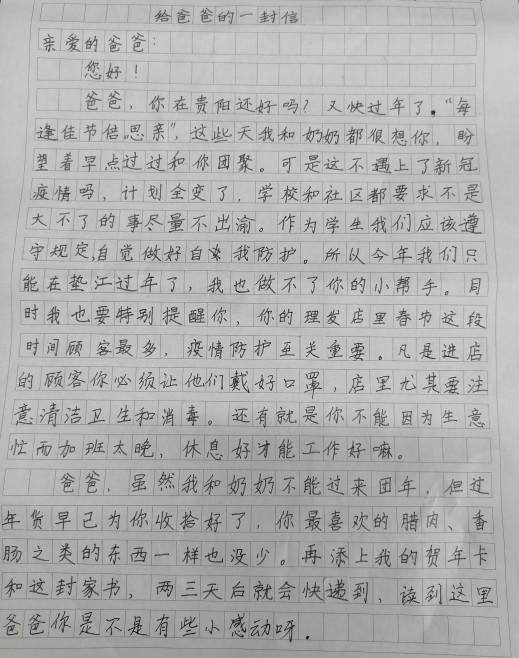 给爸爸的一封信
亲爱的爸爸：
您好！
爸爸，你在贵阳还好吗？又快过年了。“每
逢佳节倍思亲”，这些天我和奶奶都很想你，盼
望着早点过过和你团聚。可是这不遇上了新冠
疫情吗，计划全变了，学校和社区都要求不是
大不了的事尽量不出渝。作为学生我们应该遵
守规定，自觉做好自我防护。所以今年我们只
能在垫江过年了，我也做不了你的小帮手。同
时我也要特别提醒你，你的理发店里春节这段
时间顾客最多，疫情防护至关重要。凡是进店
的顾客你必须让他们戴好口罩，店里尤其要注
意清洁卫生和消毒。还有就是你不能因为生意
忙而加班太晚，休息好才能工作好嘛。
爸爸，虽然我和奶奶不能过来团年，但过
年货早已为你收拾好了，你最喜欢的腊肉、香
肠之类的东西一样也没少。再添上我的贺年卡
和这封家书，两三天后就会快递到，读到这里
爸爸你是不是有些小感动呀。